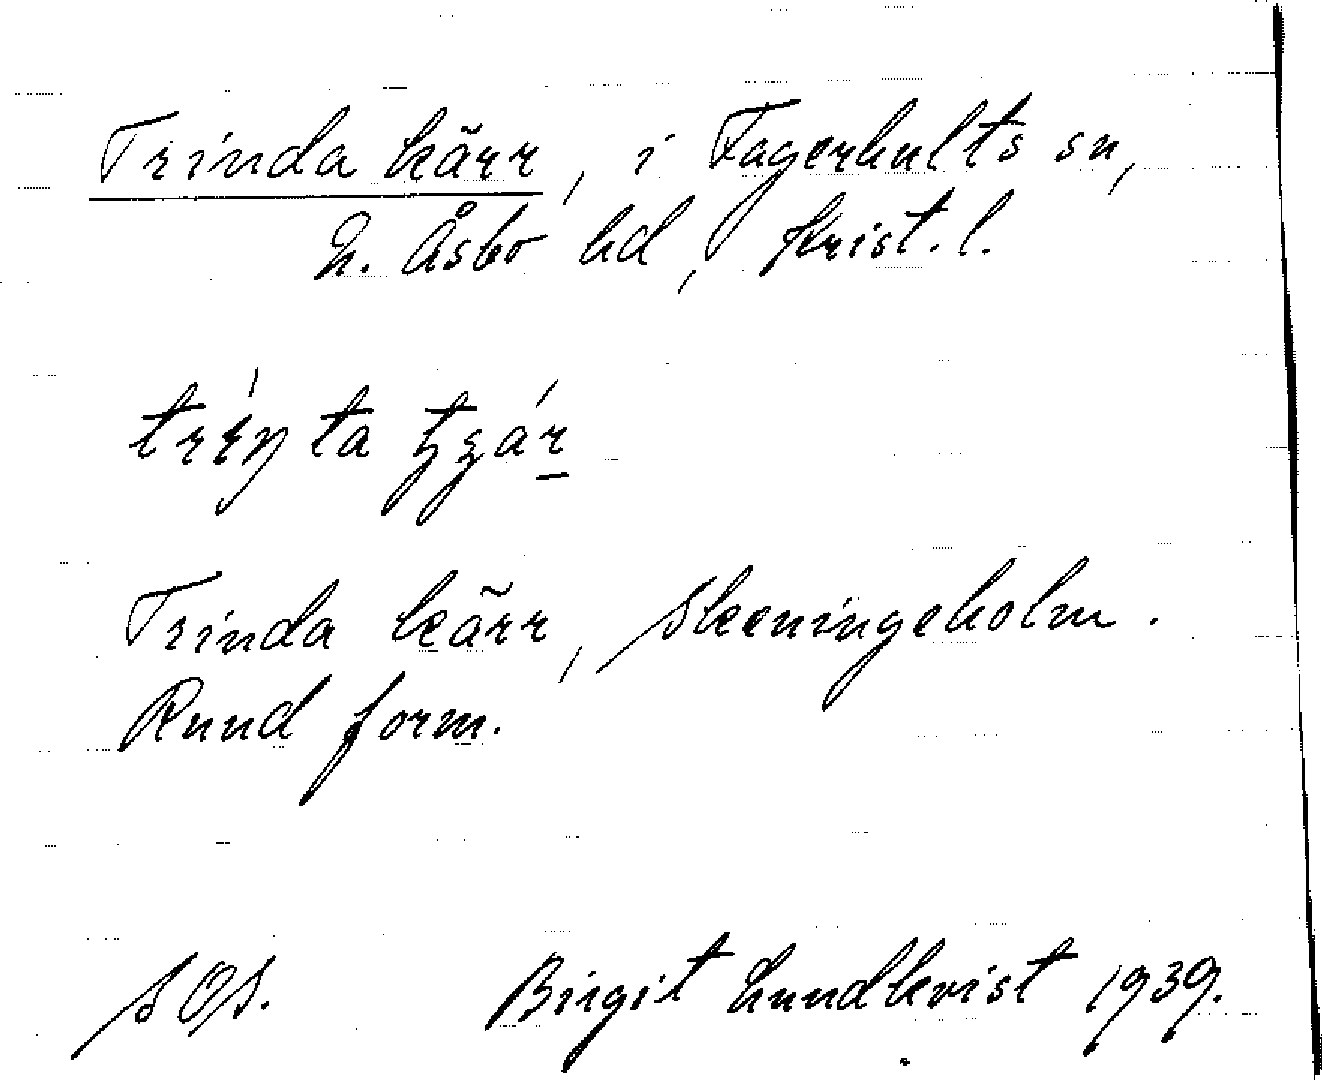 Trinda kärr, i Fagerhults sn,
N. Åsbo hd, Krist. l.
Trinda kärr, Skeeningeholm.
Rund form.
SOS. Birgit Lundkvist 1939.